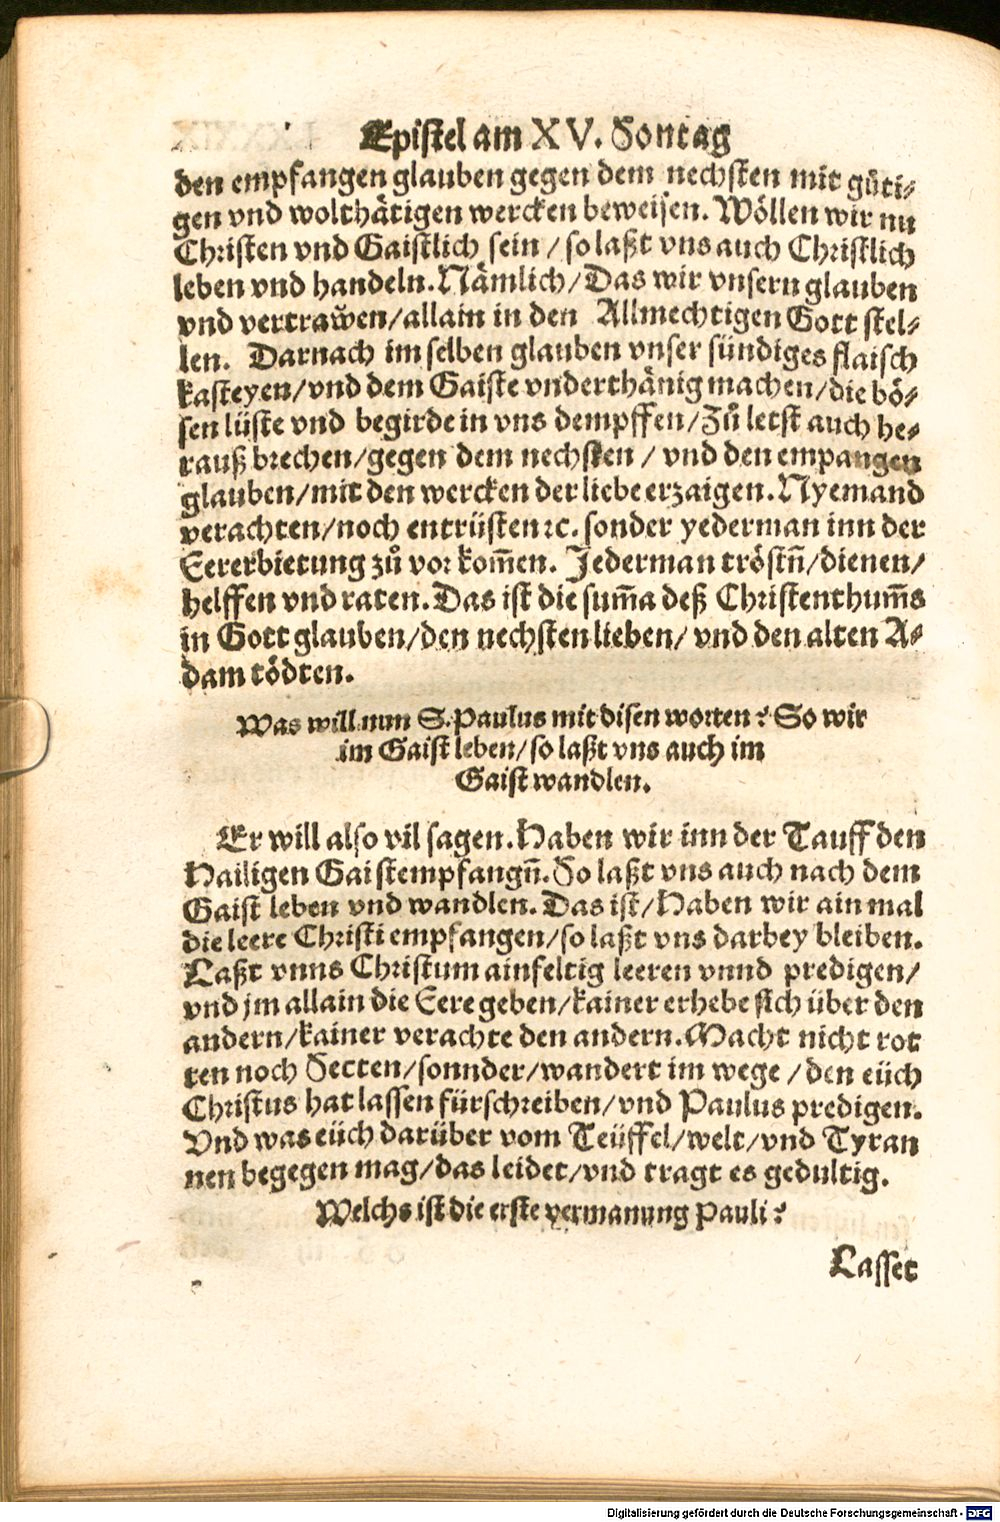 Epistel am XV. Sontag
den empfangen glauben gegen dem nechsten mit güti⸗
gen vnd wolthätigen wercken beweisen. Wöllen wir nu
Christen vnd Gaistlich sein / so laßt vns auch Christlich
leben vnd handeln. Nämlich / Das wir vnsern glauben
vnd vertrawen / allain in den Allmechtigen Gott stel⸗
len. Darnach im selben glauben vnser sündiges flaisch
kasteyen / vnd dem Gaiste vnderthänig machen / die bö⸗
sen lüste vnd begirde in vns dempffen / Zů letst auch he⸗
rauß brechen / gegen dem nechsten / vnd den empangen
glauben / mit den wercken der liebe erzaigen. Nyemand
verachten / noch entrüsten ꝛc. sonder yederman inn der
Eererbietung zů vor kom̃en. Jederman tröstn̄ / dienen /
helffen vnd raten. Das ist die sum̃a deß Christenthum̃s
in Gott glauben / den nechsten lieben / vnd den alten A⸗
dam tödten.
Was will nun S. Paulus mit disen worten? So wir
im Gaist leben / so laßt vns auch im
Gaist wandlen.
Er will also vil sagen. Haben wir inn der Tauff den
Hailigen Gaist empfangn̄. So laßt vns auch nach dem
Gaist leben vnd wandlen. Das ist / Haben wir ain mal
die leere Christi empfangen / so laßt vns darbey bleiben.
Laßt vnns Christum ainfeltig leeren vnnd predigen /
vnd jm allain die Eere geben / kainer erhebe sich über den
andern / kainer verachte den andern. Macht nicht rot
ten noch Secten / sonnder / wandert im wege / den eüch
Christus hat lassen fürschreiben / vnd Paulus predigen.
Vnd was eüch darüber vom Teüffel / welt / vnd Tyran
nen begegen mag / das leidet / vnd tragt es gedultig.
Welchs ist die erste vermanung Pauli?
Lasset
Digitalisierung gefördert durch die Deutsche Forschungsgemeinschaft - DFG